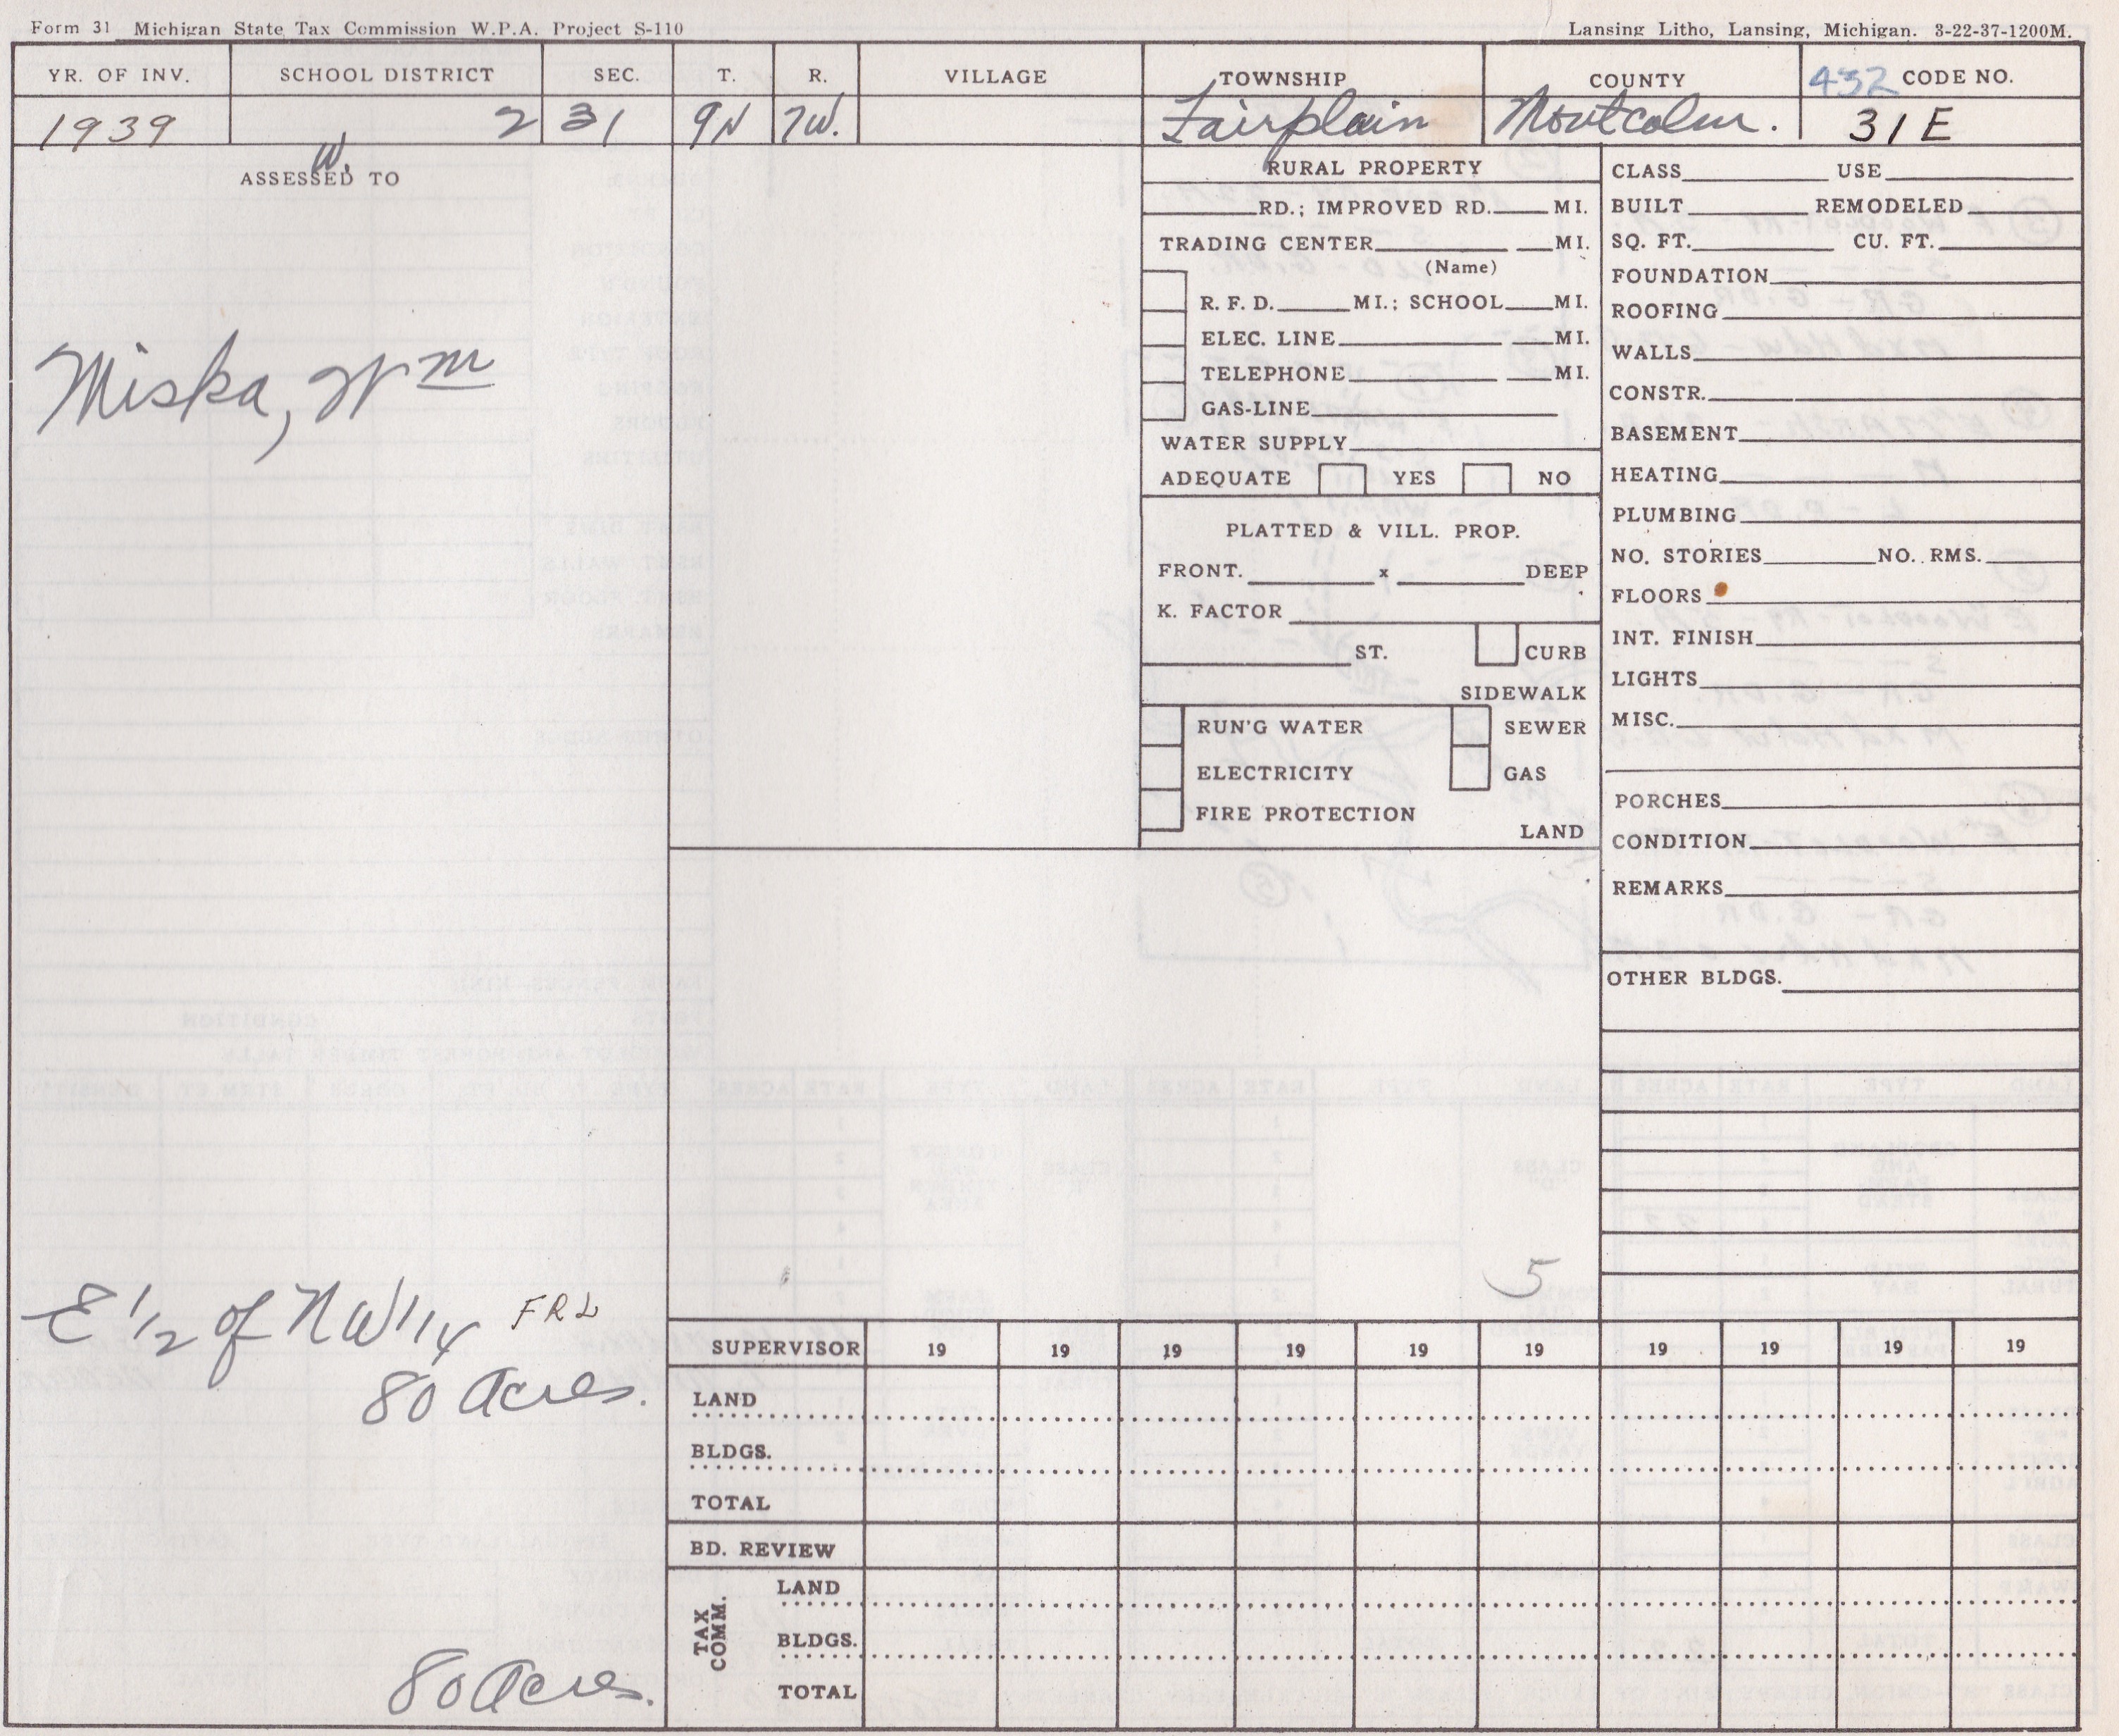 Form 31 Michigan State Tax Commission W.P.A. Project S-110
Lansing Litho, Lansing, Michigan. 3-22-37-1200M.
YR. OF INV. SCHOOL DISTRICT SEC. T. R. VILLAGE TOWNSHIP COUNTY 432 CODE NO.
1939 2 31 9N 7W. Fairplain Montcalm. 31 E
W.
ASSESSED TO
Miska, Wm
E 1/2 of NW 1/4 FRL
80 Acres.
80 Acres.
RURAL PROPERTY
RD.; IMPROVED RD. MI.
TRADING CENTER MI.
(Name)
R. F. D. MI.; SCHOOL MI.
ELEC. LINE MI.
TELEPHONE MI.
GAS-LINE
WATER SUPPLY
ADEQUATE YES NO
PLATTED & VILL. PROP.
FRONT. x DEEP
K. FACTOR
ST. CURB
SIDEWALK
RUN'G WATER SEWER
ELECTRICITY GAS
FIRE PROTECTION
LAND
CLASS USE
BUILT REMODELED
SQ. FT. CU. FT.
FOUNDATION
ROOFING
WALLS
CONSTR.
BASEMENT
HEATING
PLUMBING
NO. STORIES NO. RMS.
FLOORS
INT. FINISH
LIGHTS
MISC.
PORCHES
CONDITION
REMARKS
OTHER BLDGS.
5
SUPERVISOR 19 19 19 19 19 19 19 19 19 19
LAND
BLDGS.
TOTAL
BD. REVIEW
TAX COMM.
LAND
BLDGS.
TOTAL